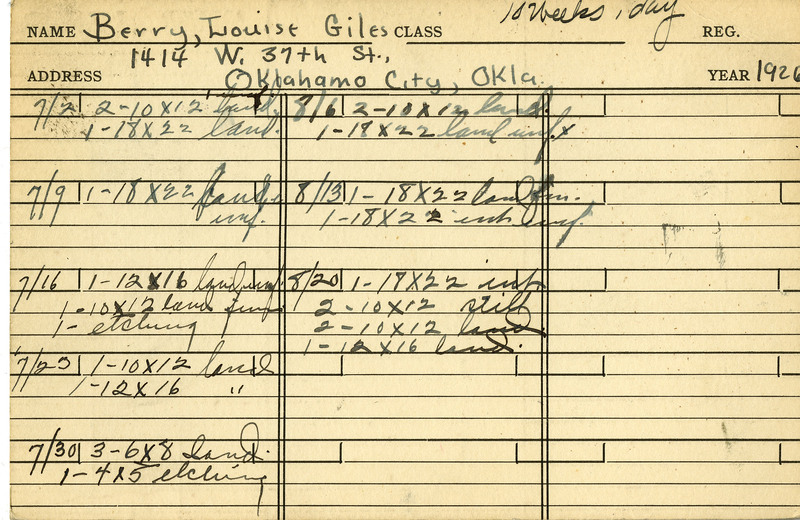 10 Weeks 1 day
NAME Berry, Louise Giles CLASS REG.
1414 W. 37th St.,
ADDRESS Oklahamo City, Okla. YEAR 1926
7/2 2-10X12 land.
1-18X22 land.
7/9 1-18X22 land
unf.
7/16 1-12X16 land unf.
1-10X12 land
1- etching
7/23 1-10X12 land
1-12X16 "
7/30 3-6X8 land.
1-4X5 etching
8/6 2-10X12 land.
1-18X22 land unf. x
8/13 1-18X22 land
1-18X22 int unf.
8/20 1-17X22 int
2-10X12 still
2-10X12 land
1-12X16 land.